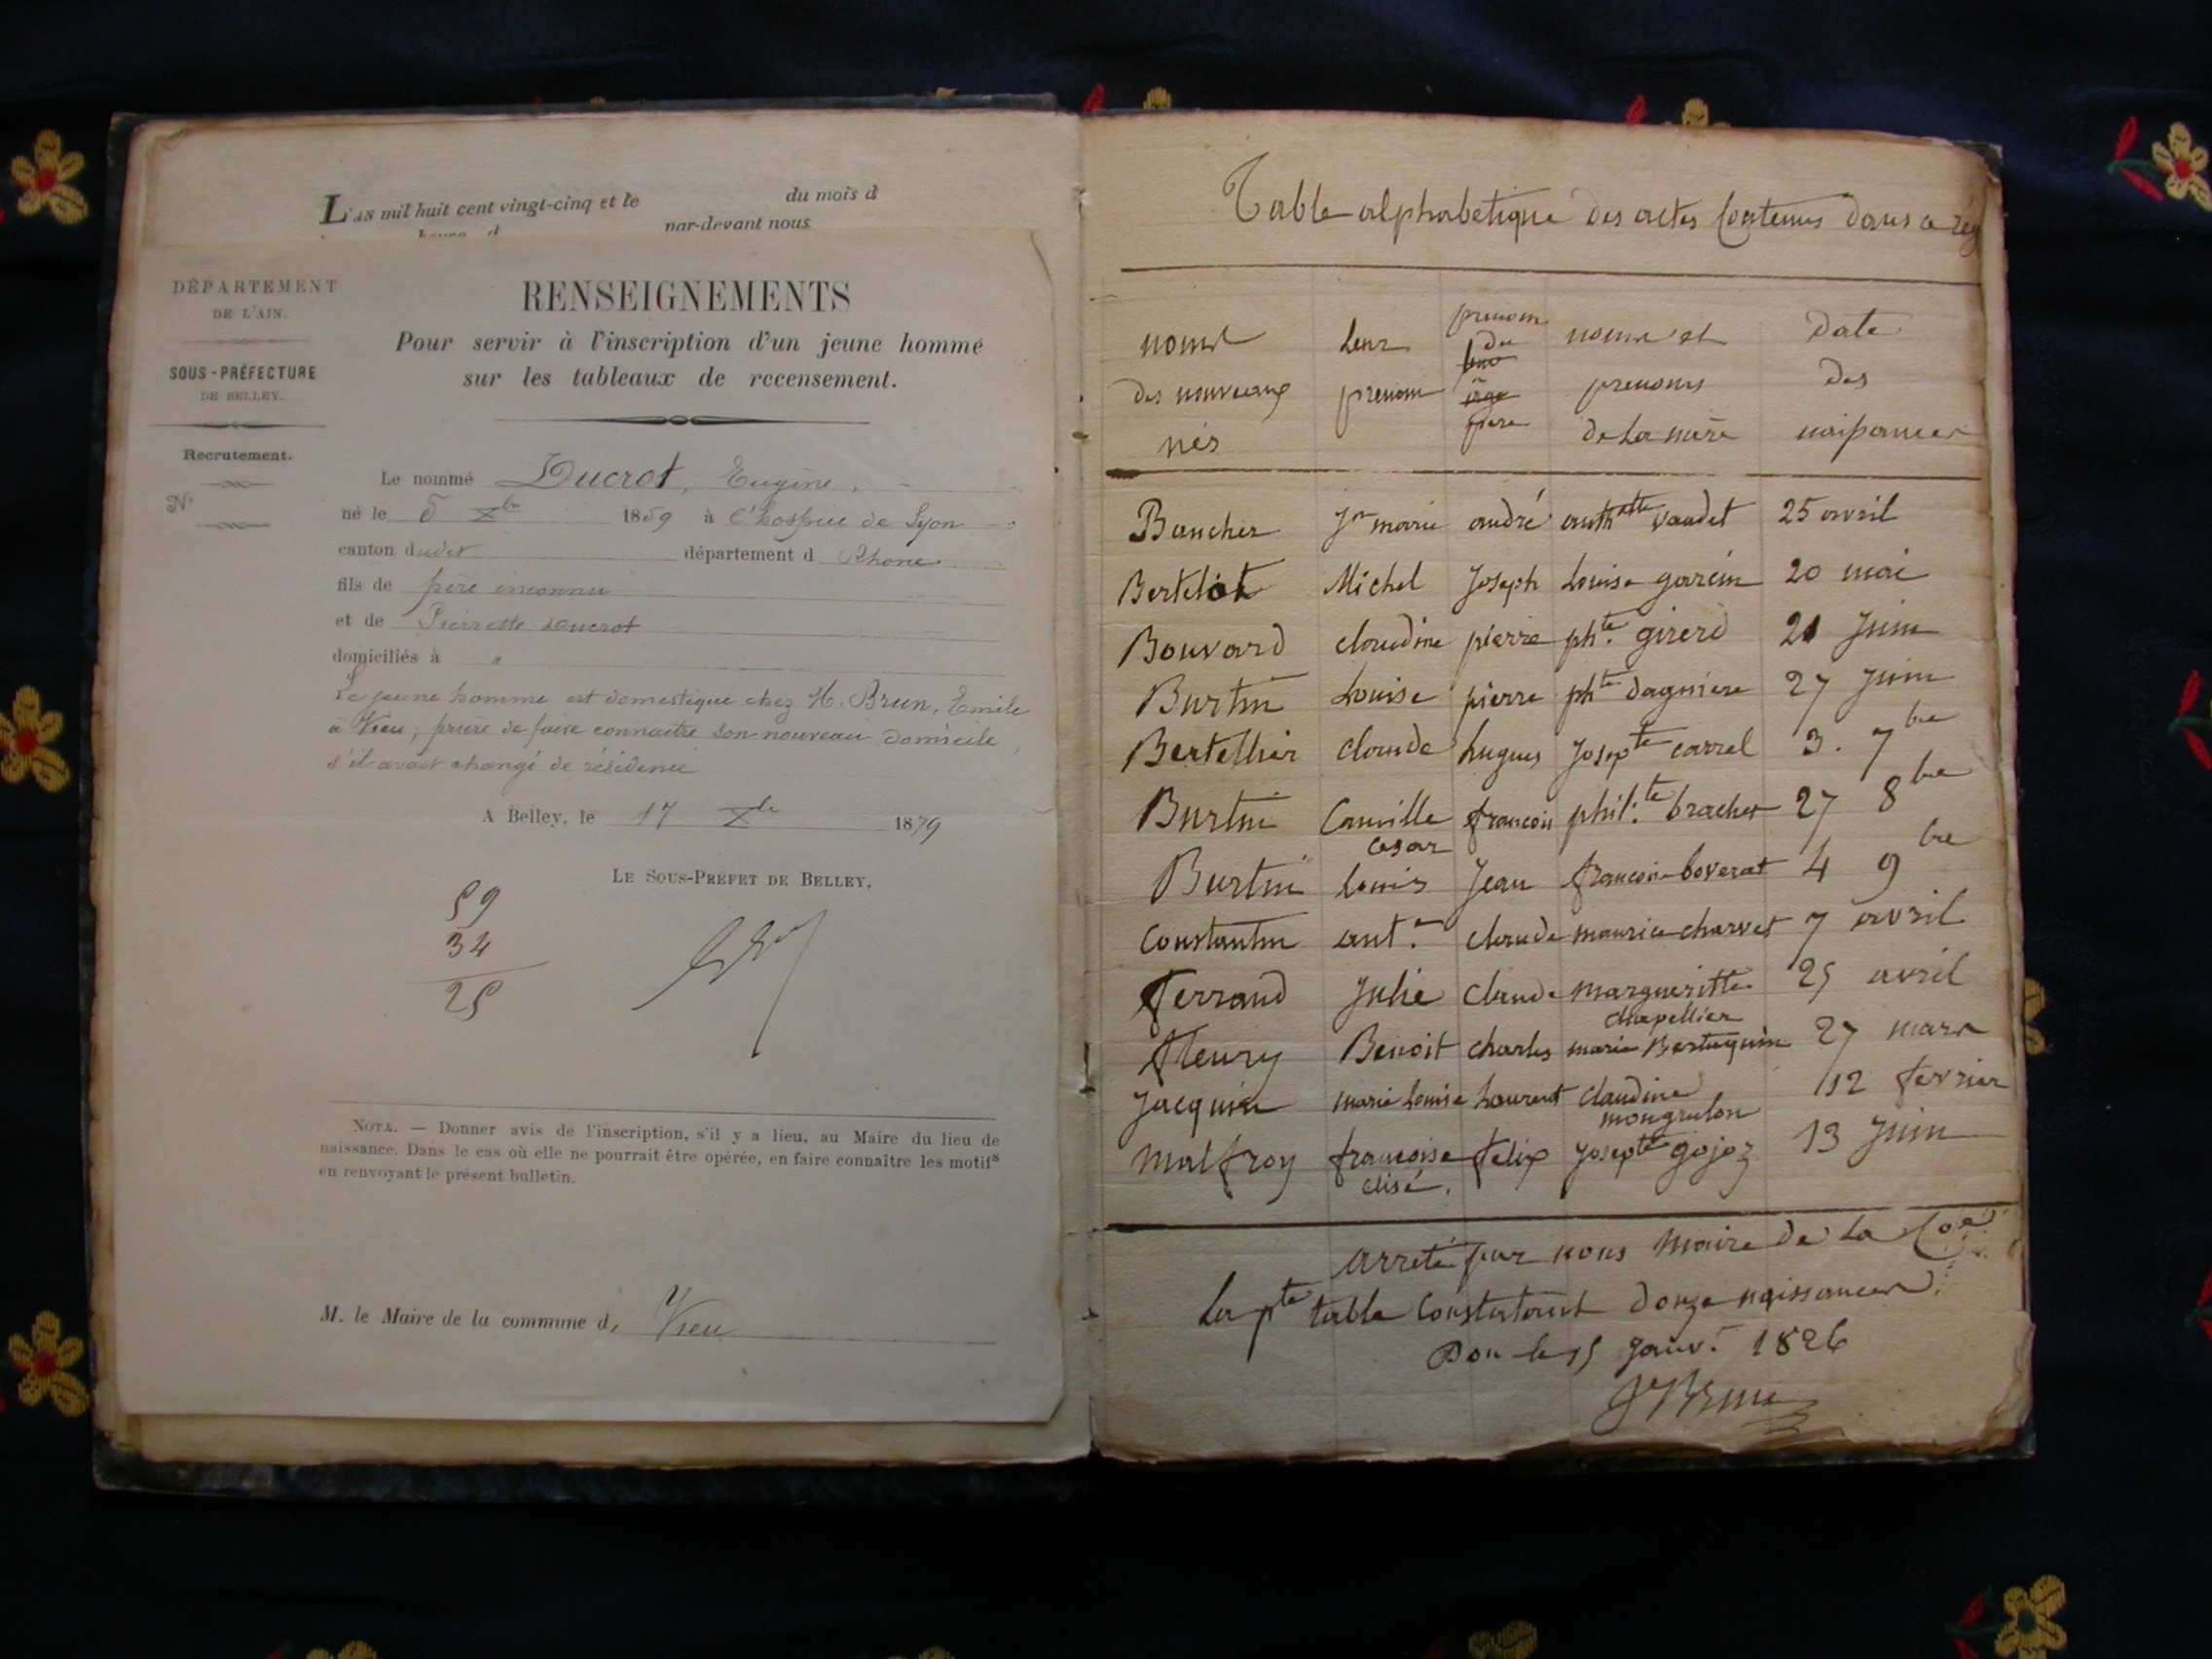 L'AN mil huit cent vingt-cinq et le du mois d
heure d par-devant nous
DÉPARTEMENT
DE L'AIN.
SOUS-PRÉFECTURE
DE BELLEY.
Recrutement.
N°
RENSEIGNEMENTS
Pour servir à l'inscription d'un jeune homme
sur les tableaux de recensement.
Le nommé Ducrot, Eugène,
né le 5 Xbre 1859 à l'hospice de Lyon
canton dudit département d Rhone
fils de père inconnu
et de Pierrette Ducrot
domiciliés à "
Le jeune homme est domestique chez M. Brun, Emile
à Vieu; prière de faire connaitre son nouveau domicile,
s'il avait changé de résidence
A Belley, le 17 Xbre 1879
LE SOUS-PRÉFET DE BELLEY,
59
34
25
NOTA. — Donner avis de l'inscription, s'il y a lieu, au Maire du lieu de
naissance. Dans le cas où elle ne pourrait être opérée, en faire connaître les motifs
en renvoyant le présent bulletin.
M. le Maire de la commune d, Vieu
Table alphabetique des actes Contenus dans ce reg
noms des nouveaux nés leur prenom prenom du pere noms et prenoms de la mère date des naissances
Baucher Jn marie andré anthette vaudet 25 avril
Bertelot Michel Joseph Louise garcin 20 mai
Bouvard claudine pierre phte. girerd 21 Juin
Burtin Louise pierre phte dagniere 27 Juin
Bertellier claude hugues Josepte carrel 3. 7bre
Burtin Camille cesar françois phil.te brachet 27 8bre
Burtin Louis Jean françoise boverat 4 9bre
Constantin ant.e claude maurice charvet 7 avril
ferrand Julie Claude margueritte chapellier 25 avril
fleury Benoit charles marie Bertuquin 27 mars
Jacquin marie Louise Laurent claudine mongrulon 12 fevrier
Malfroy françoise elisé. felix Josepte gojoz 13 Juin
arreté par nous Maire de La Coe
La pte table Constatant douze naissances.
Don le 15 Janv. 1826